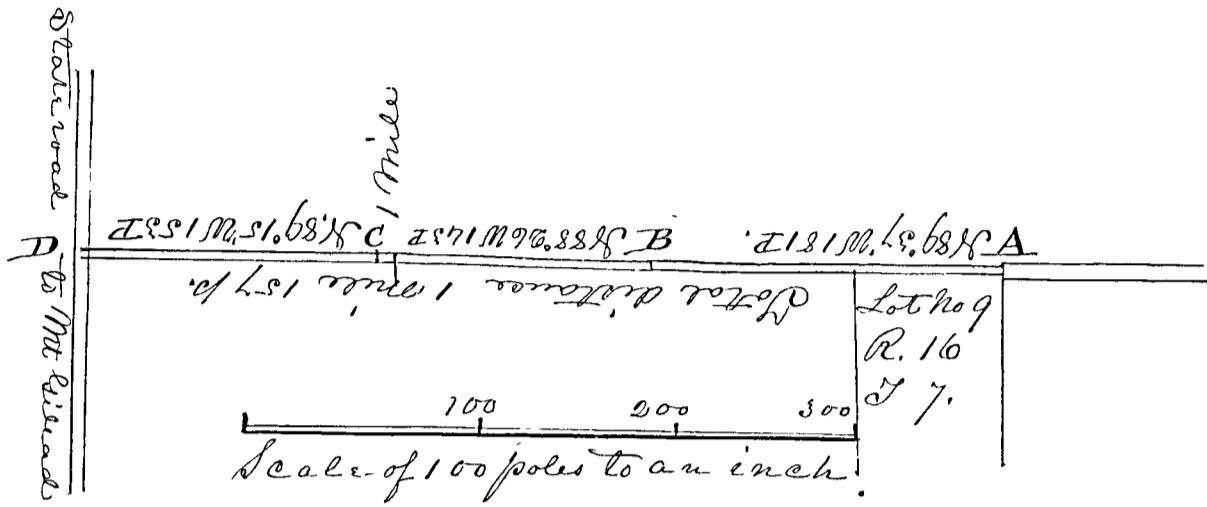 State road to Mt Gilead
1 mile
A N89°37'W 181 P.
B N88°26'W 143 P
C N.89°15'W 153 P
D
Total distance 1 mile 157 p.
Lot No 9
R. 16
T 7.
100 200 300
Scale of 100 poles to an inch.